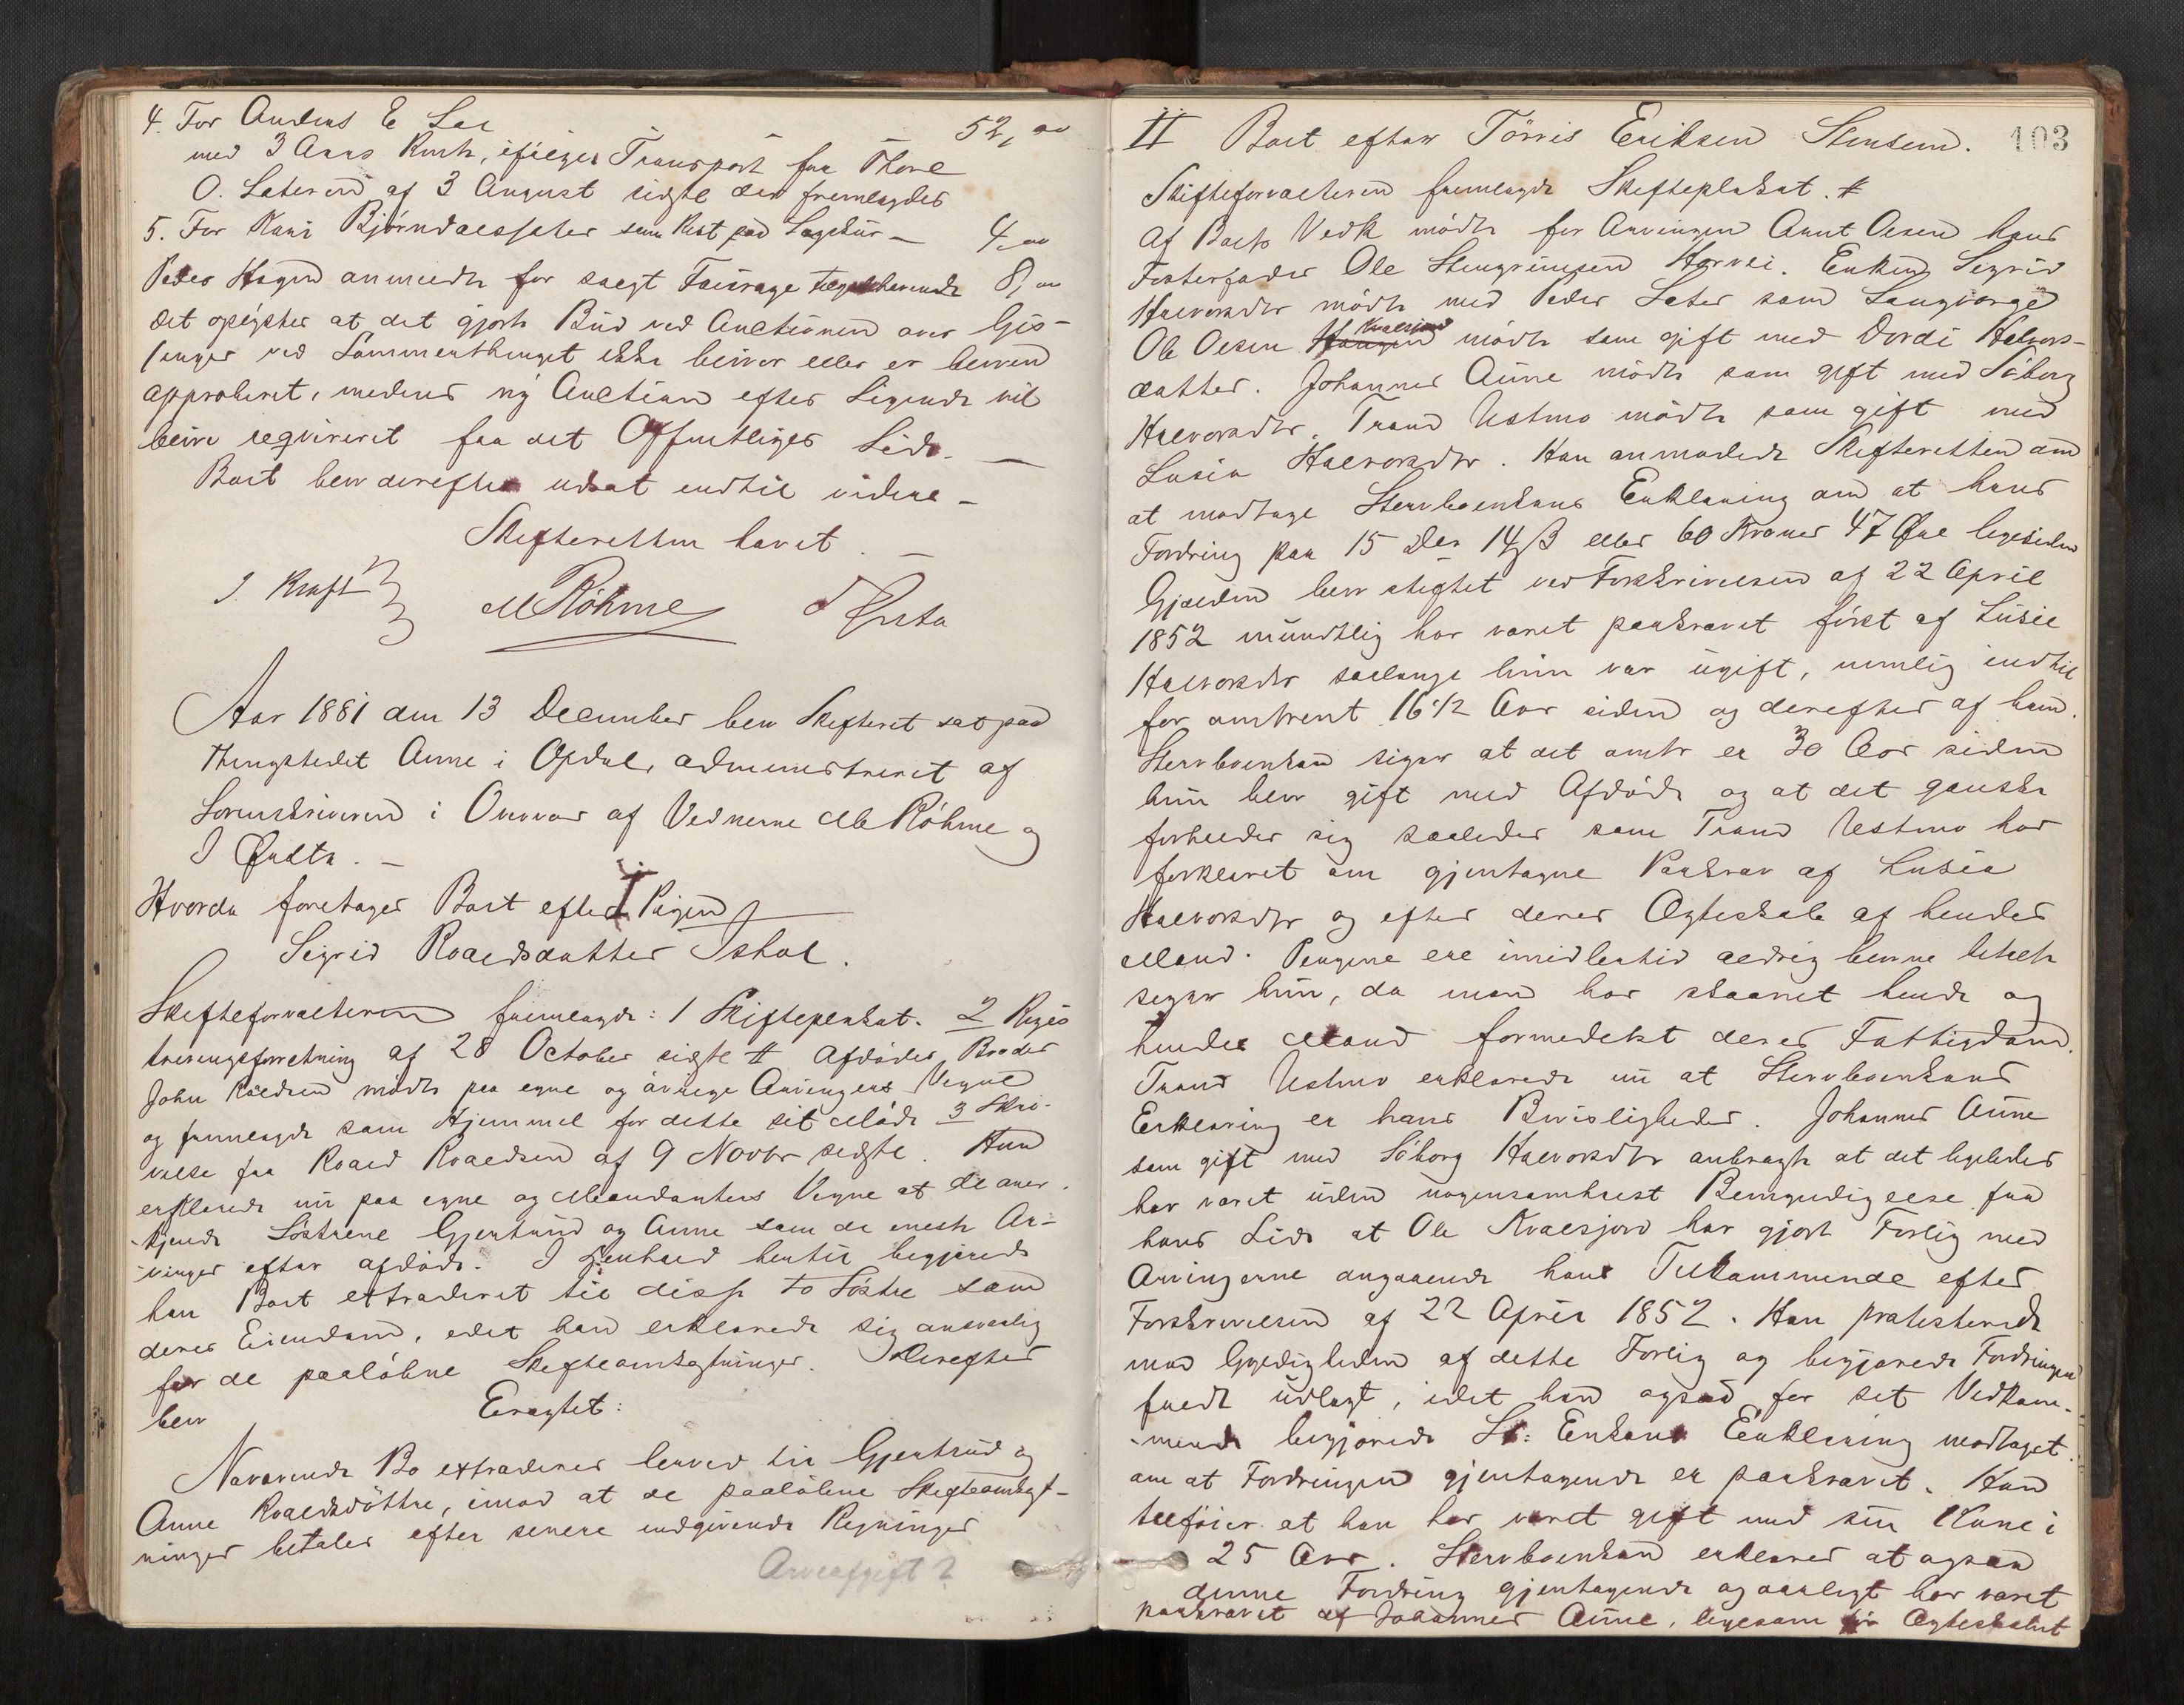 4. For Anders E Lee 52,00
med 3 Aars Rente, ifølge Transport fra Thore
O. Sæteren af 3 August sidste der fremlagdes
5. For Kari Bjørndalssæter som Rest paa Lægekur – 4,00
Peder Hagen anmeldte for solgt Fourage tilgodehavende 8,00
Det oplystes at det gjorte Bud ved Auctionen over Gis-
linger ved Sammenthinget ikke bliver eller er bleven
approberet, medens ny Auction efter Sigende vil
blive reqvireret fra det Offentliges Side. –
Boet blev derefter udsat indtil videre –
Skifteretten hævet. –
J. Kraft M Röhme J Ørsta
Aar 1881 den 13 December blev Skifteret sat paa
Thingstedet Aune i Opdal, administreret af
Sorenskriveren i Overvær af Vidnerne M Röhme og
J Ørsta. –
Hvorda foretages Boet efter I Pigen
Sigrid Roaldsdatter Ishol.
Skifteforvalteren fremlagde: 1 Skifteplakat. 2 Regis
treringsforretning af 28 October sidste # Afdødes Broder
John Roaldsen mødte paa egne og øvrige Arvingers Vegne
og fremlagde som Hjemmel for dette sit Møde 3 Skri-
velse fra Roald Roaldsen af 9 Novbr sidste. Han
erklærede nu paa egne og Mandanters Vegne at de aner-
-kjende Søstrene Gjertrud og Anne som de eneste Ar-
-vinger efter afdøde. I Henhold hertil begjærede
han Boet extraderet til disse to Søstre som
deres Eiendom, idet han erklærede sig ansvarlig
for de paaløbne Skifteomkostninger. Derefter
blev Eragtet:
Nærværende Bo extraderes herved til Gjertrud og
Anne Roaldsdøttre, imod at de paaløbne Skifteomkost-
ninger betales efter senere indgivende Regninger
Arveafgift?
II Boet efter Tørris Eriksen Stensem. 103
Skifteforvalteren fremlagde Skifteplakat. #
Af Boets Vedk mødte for Arvingen Arnt Olsen hans
Fosterfader Ole Stengrimsen Horvli. Enken Sigrid
Halvorsdtr mødte med Peder Sæter som Laugværge
Ole Olsen Haugen Kvalsjord mødte som gift med Dordi Halvors-
datter. Johannes Aune mødte som gift med Søborg
Halvorsdtr. Trond Ustmo mødte som gift med
Lusia Halvorsdtr. Han anmodede Skifteretten om
at modtage Stervboenkens Erklæring om at hans
Fordring paa 15 Dlr 14 ß eller 60 Kroner 47 Øre ligesiden
Gjælden blev stiftet ved Forskrivelsen af 22 April
1852 mundtlig har været paakrævet først af Lusie
Halvorsdtr saalænge hun var ugift, nemlig indtil
for omtrent 16 1/2 Aar siden og derefter af ham.
Stervboenken siger at det omtr er 30 Aar siden
hun blev gift med Afdøde og at det ganske
forholder sig saaledes som Trond Ustmo har
forklaret om gjentagne Paakrav af Lusia
Halvorsdtr og efter deres Ægteskab af hendes
Mand. Pengene ere imidlertid aldrig blevne betalt
siger hun, da man har skaanet hende og
hendes Mand formedelst deres Fattigdom.
Trond Ustmo erklærede nu at Stervboenkens
Erklæring er hans Bevisligheder. Johannes Aune
som gift med Søborg Halvorsdtr anbragte at det ligeledes
har været uden nogensomhelst Bemyndigelse fra
hans Side at Ole Kvalsjord har gjort Forlig med
Arvingerne angaaende hans Tilkommende efter
Forskrivelsen af 22 April 1852. Han protesterede
mod Gyldigheden af dette Forlig og begjærede Fordringen
fuldt udlagt, idet han ogsaa for sit Vedkom-
-mende begjærede St: Enkens Erklæring modtaget
om at Fordringen gjentagende er paakrævet. Han
tilføier at han har været gift med sin Kone i
25 Aar. Stervboenken erklærer at ogsaa
denne Fordring gjentagende og aarligt har været
paakrævet af Johannes Aune, ligesom før Ægteskabet